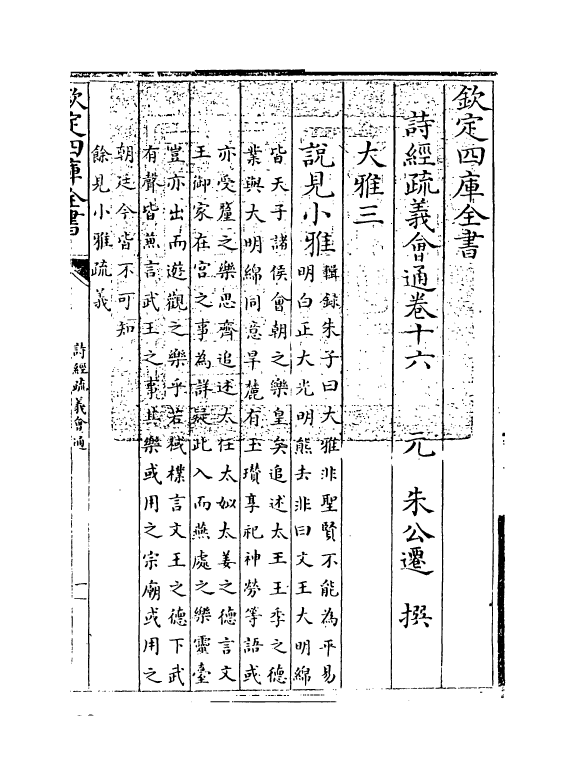 欽定四庫全書
詩經疏義會通卷十六 元 朱公遷 撰
大雅三
說見小雅
輯錄朱子曰大雅非聖賢不能為平易
明白正大光明熊去非曰文王大明綿
皆天子諸侯會朝之樂皇矣追述太王王季之德
業與大明綿同意旱麓有玉瓚享祀神勞等語或
亦受釐之樂思齊追述太任太姒太姜之德言文
王御家在宮之事為詳疑此入而燕處之樂靈臺
豈亦出而遊觀之樂乎若棫樸言文王之德下武
有聲皆兼言武王之事其樂或用之宗廟或用之
朝廷今皆不可知
餘見小雅疏義
欽定四庫全書
詩經疏義會通
一